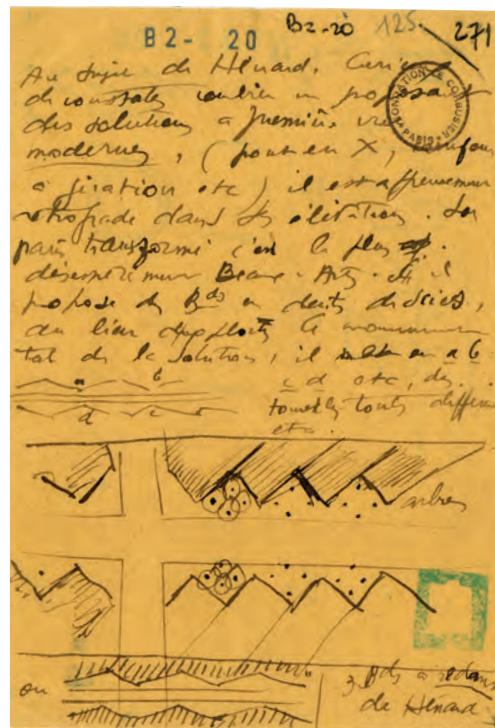 B2-20 B2-20 125. 271
FONDATION LE CORBUSIER PARIS
Au sujet de Hénard. Curi
de constater combien en proposant
des solutions à première vue
modernes, (pont en X,
à giration etc) il est affreusement
rétrograde dans ses élévations. Son
paris transformé c'est le plus
désespérément Beaux-Arts. Et il
propose des Bds en dents de scies,
au lieu d'exploiter le monumen
tal de la solution, il en a b
c d etc, des
toutes
etc.
a b
d c
arbres
ou
3 Bds à redans
de Hénard